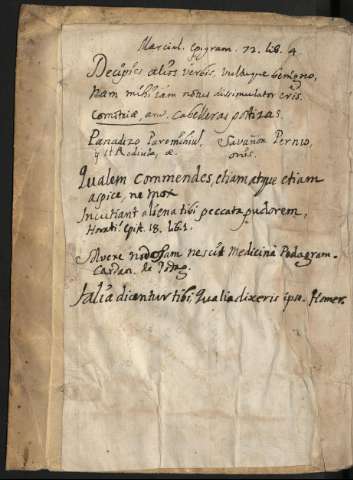 Marcial. Epigram. 72. lib. 4.
Decipies alios verbis, vultuque benigno,
Nam mihi iam notus dissimulator eris.
Comotriæ, aru. Cabelleras postizas.
Panadizo Paronichiul. Savañon Pernio,
y st Rediuia, æ. onis.
Qualem commendes, etiam atque etiam
aspice, ne mox
Incutiant aliena tibi peccata pudorem,
Horati. Epist. 18. lib. 1.
Solvere nodosam nescit Medicina Podagram.
Cardan. de Podag.
Talia dicentur tibi, Qualia dixeris ipse. Homer.